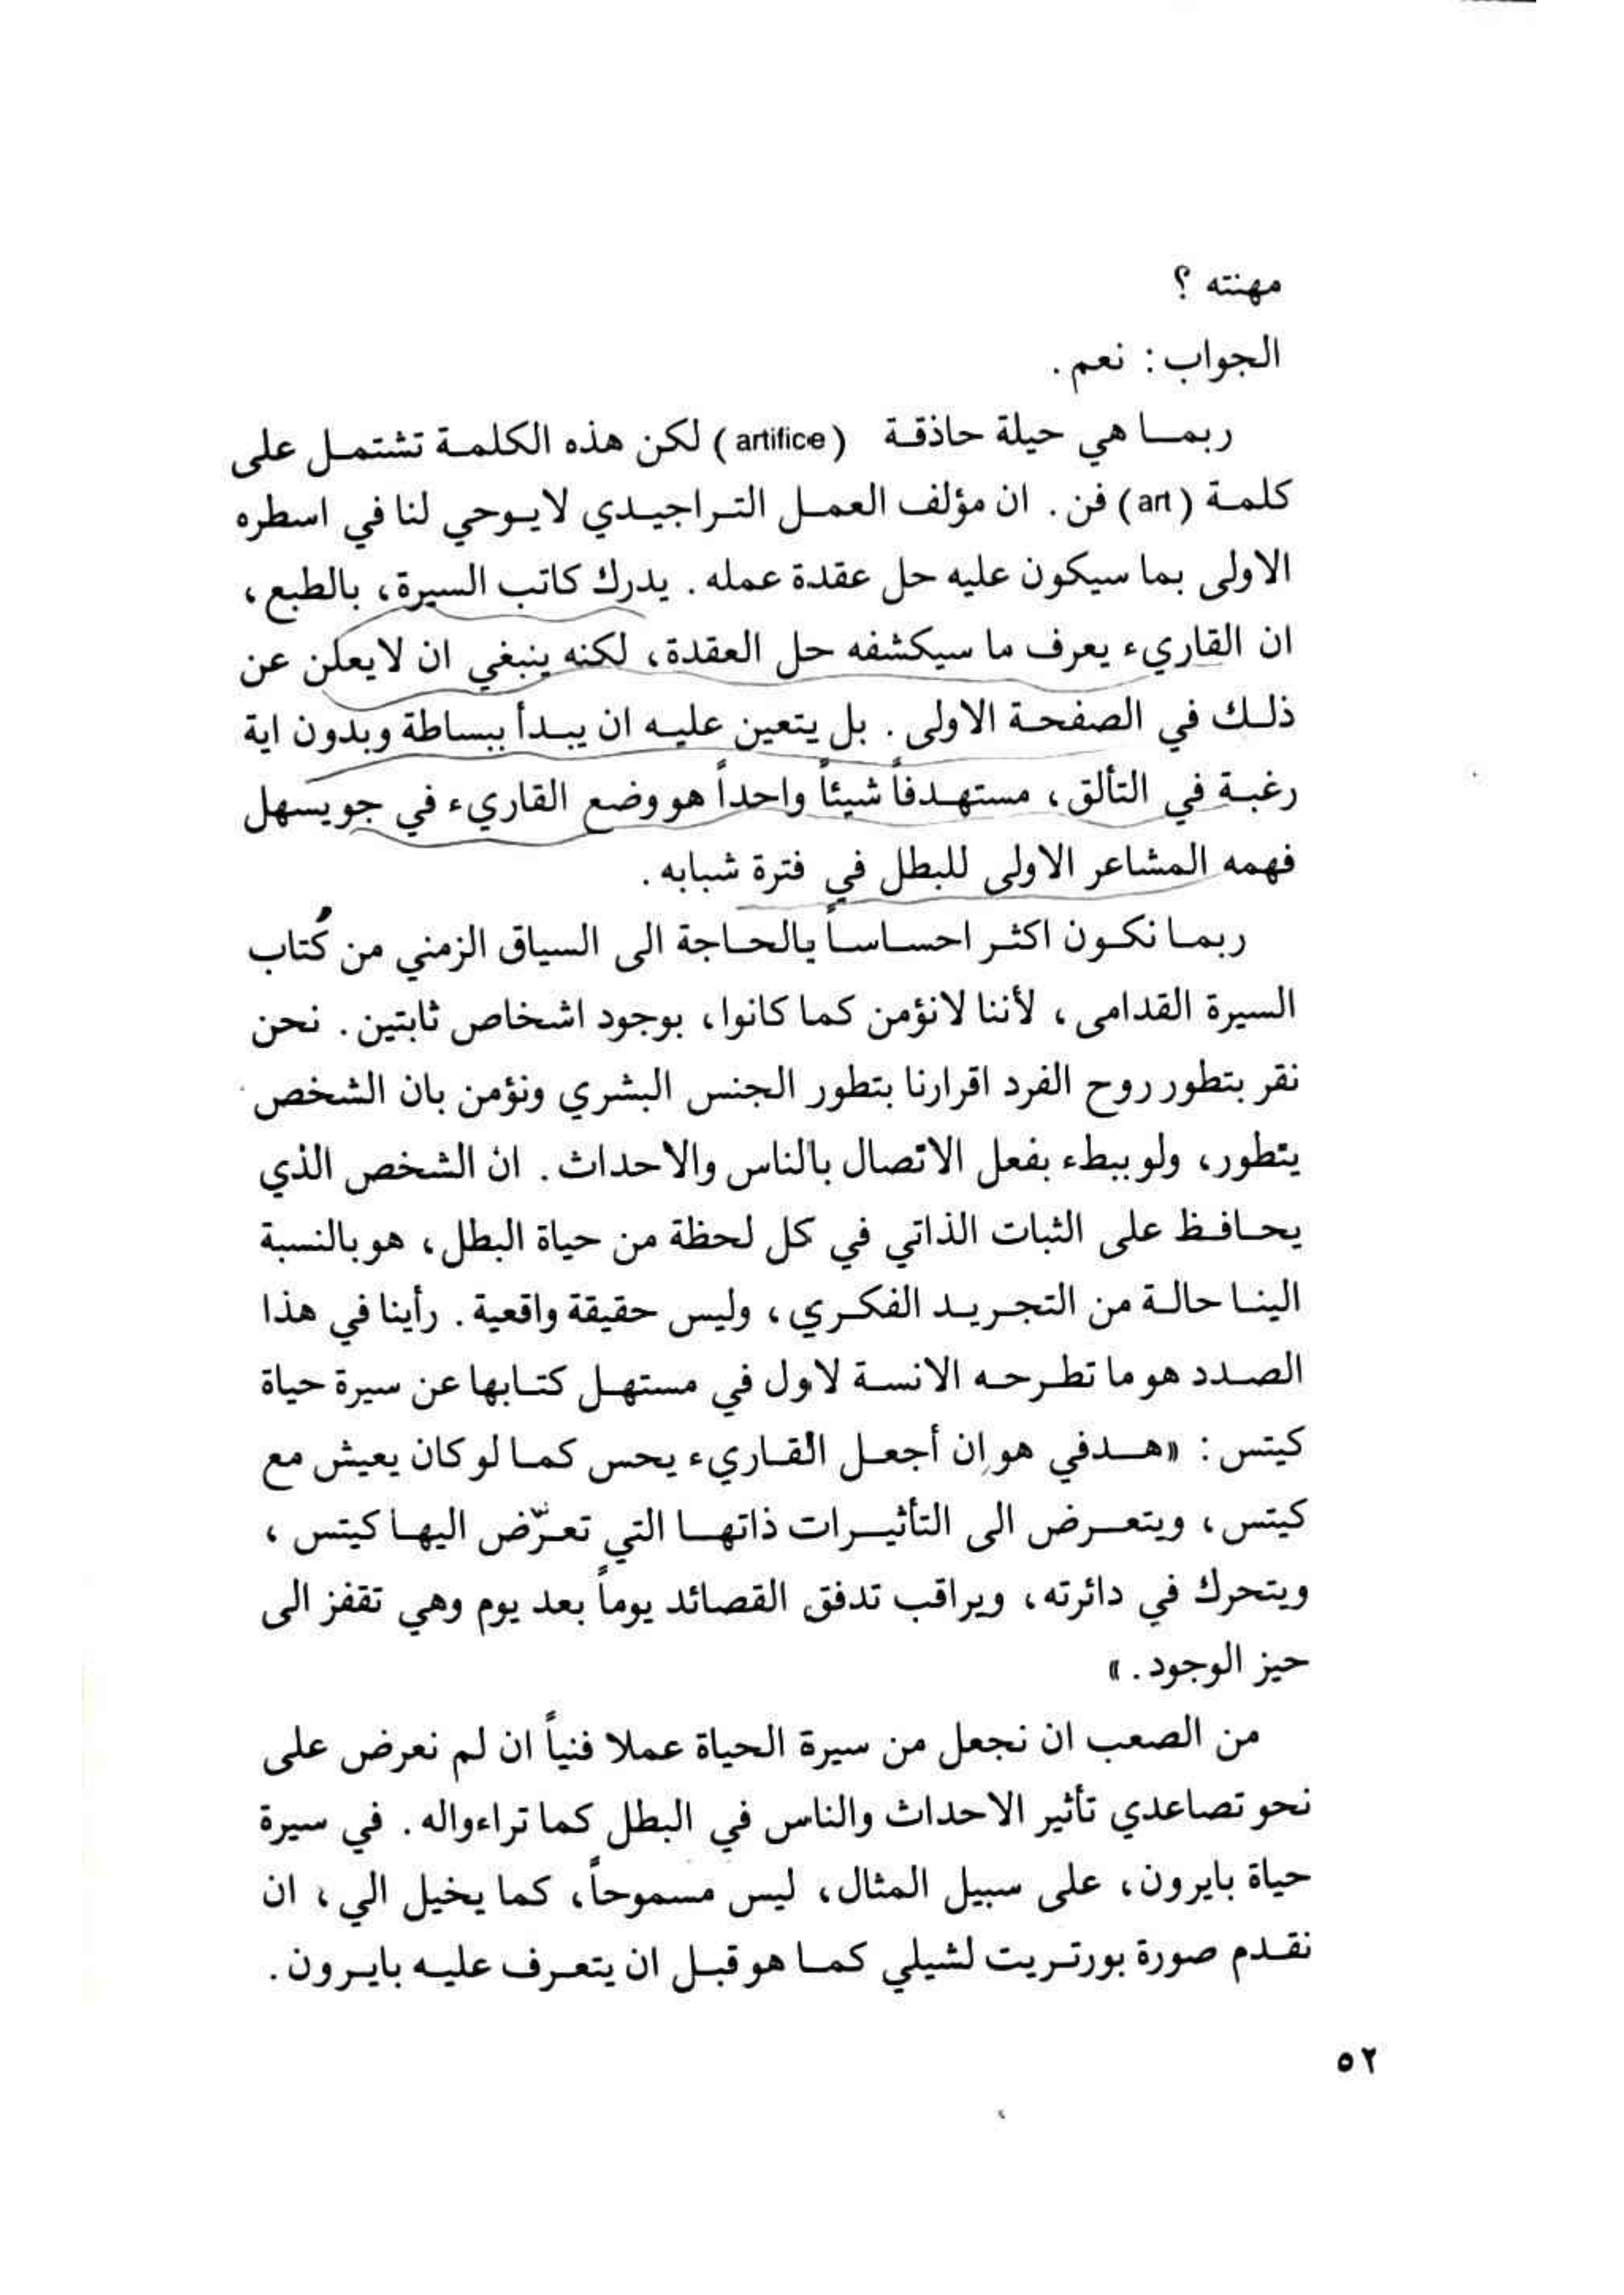 مهنته ؟
الجواب : نعم .
ربما هي حيلة حاذقة (artifice) لكن هذه الكلمة تشتمل على
كلمة (art) فن . ان مؤلف العمل التراجيدي لايوحي لنا في اسطره
الاولى بما سيكون عليه حل عقدة عمله . يدرك كاتب السيرة، بالطبع،
ان القاريء يعرف ما سيكشفه حل العقدة، لكنه ينبغي ان لايعلن عن
ذلك في الصفحة الاولى . بل يتعين عليه ان يبدأ ببساطة وبدون اية
رغبة في التألق، مستهدفاً شيئاً واحداً هو وضع القاريء في جو يسهل
فهمه المشاعر الاولى للبطل في فترة شبابه .
ربما نكون اكثر احساساً بالحاجة الى السياق الزمني من كُتاب
السيرة القدامى، لأننا لانؤمن كما كانوا، بوجود اشخاص ثابتين . نحن
نقر بتطور روح الفرد اقرارنا بتطور الجنس البشري ونؤمن بان الشخص
يتطور، ولو ببطء بفعل الاتصال بالناس والاحداث . ان الشخص الذي
يحافظ على الثبات الذاتي في كل لحظة من حياة البطل، هو بالنسبة
الينا حالة من التجريد الفكري، وليس حقيقة واقعية . رأينا في هذا
الصدد هو ما تطرحه الانسة لاول في مستهل كتابها عن سيرة حياة
كيتس : «هدفي هو ان أجعل القاريء يحس كما لو كان يعيش مع
كيتس، ويتعرض الى التأثيرات ذاتها التي تعرّض اليها كيتس،
ويتحرك في دائرته، ويراقب تدفق القصائد يوماً بعد يوم وهي تقفز الى
حيز الوجود . »
من الصعب ان نجعل من سيرة الحياة عملا فنياً ان لم نعرض على
نحو تصاعدي تأثير الاحداث والناس في البطل كما تراءوا له . في سيرة
حياة بايرون، على سبيل المثال، ليس مسموحاً، كما يخيل الي، ان
نقدم صورة بورتريت لشيلي كما هو قبل ان يتعرف عليه بايرون .
٥٢